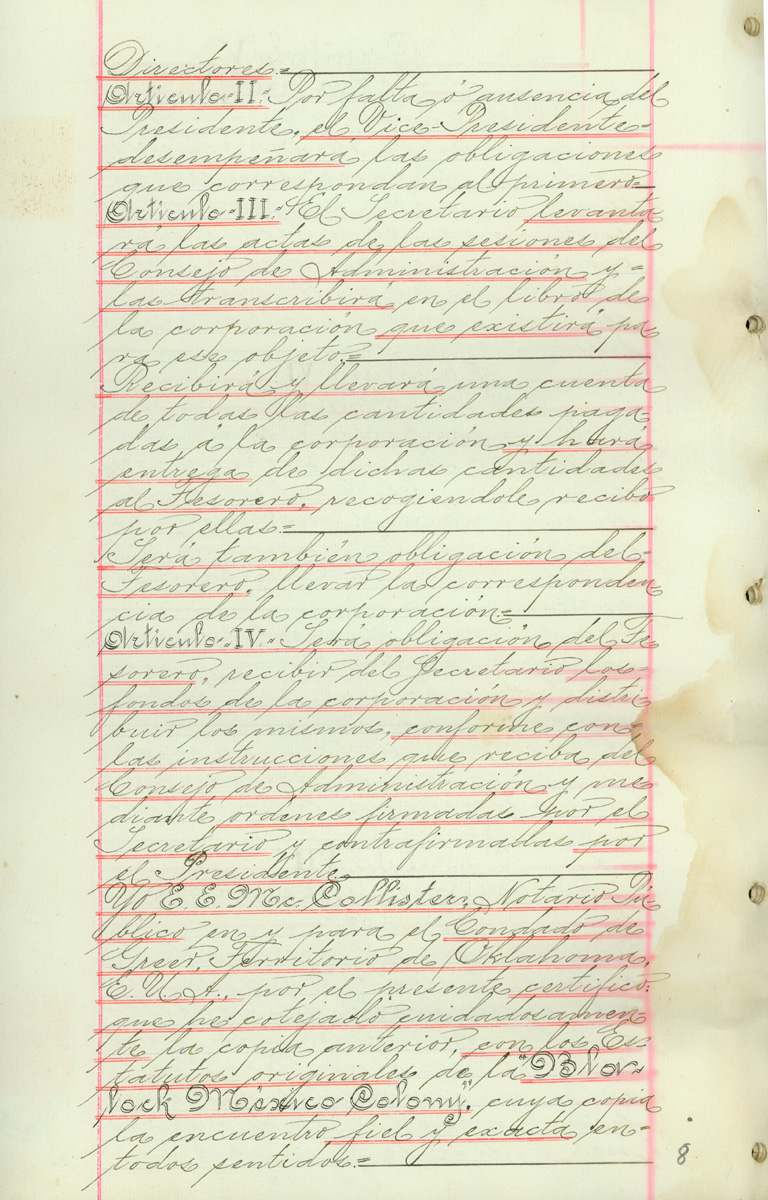 Directores.=
Articulo-II.- Por falta ó ausencia del
Presidente, el Vice-Presidente-
desempeñará las obligaciones
que correspondan al primero=
Articulo-III.- El Secretario levanta
rá las actas de las sesiones del
Consejo de Administración y=
las transcribirá en el libro de
la corporación que existirá pa
ra ese objeto.=
Recibirá y llevará una cuenta
de todas las cantidades paga-
das á la corporación y hará
entrega de dichas cantidades
al Tesorero, recogiendole recibo
por ellas.=
Será también obligación del-
Tesorero, llevar la corresponden
cia de la corporación=
Articulo-IV.- Será obligación del Te
sorero, recibir del Secretario los-
fondos de la corporación y distri
buir los mismos, conforme con-
las instrucciones que reciba del
Consejo de Administración y me
diante ordenes firmadas por el
Secretario y contrafirmadas por
el Presidente
Yo E. E. Mc. Collister, Notario Pú
blico en y para el Condado de
Greer, Territorio de Oklahoma,
E. U. A., por el presente certifico:
que he cotejado cuidadosamen
te la copia anterior, con los Es-
tatutos originales de la "Bla-
lock México Colony", cuya copia
la encuentro fiel y exacta en-
todos sentidos.=
8